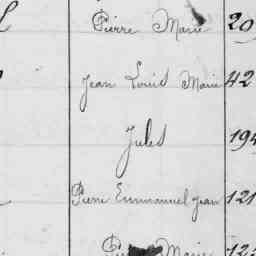 Pierre Marie 20
Jean Louis Marie 42
Jules 194
Pierre Emmanuel Jean 121
Marie 12